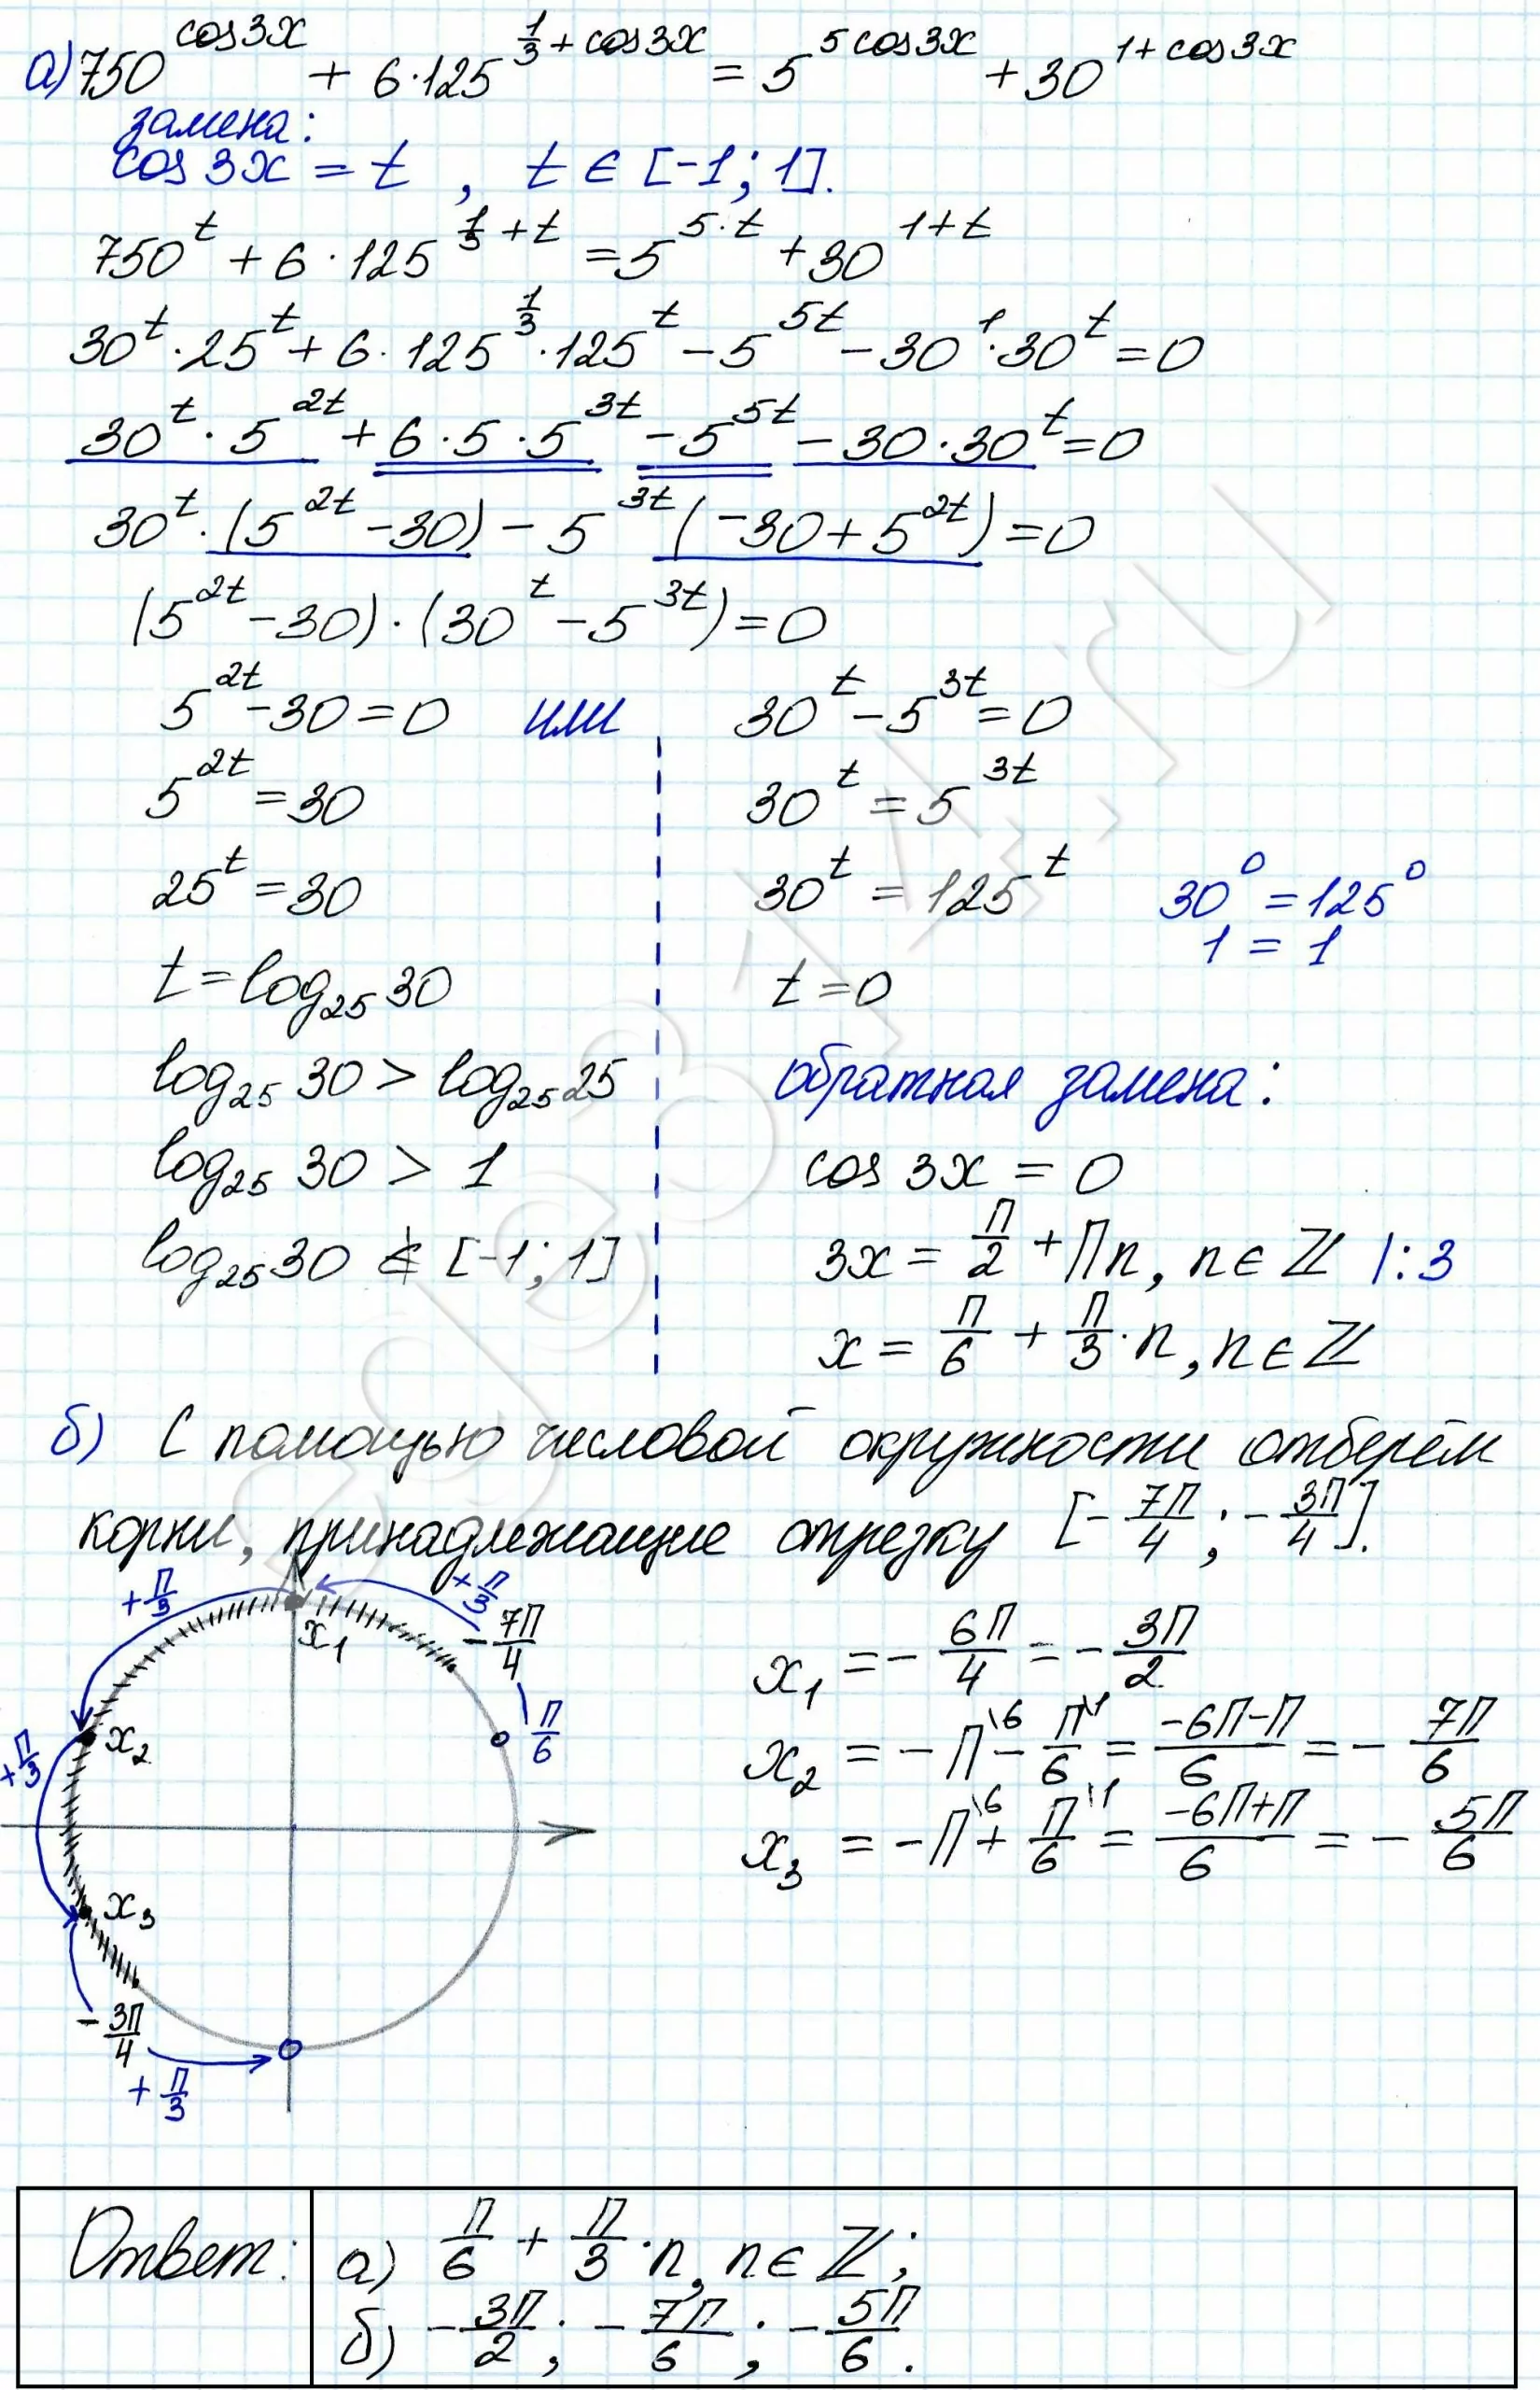 а) 750^(cos3x) + 6·125^(1/3 + cos3x) = 5^(5cos3x) + 30^(1+cos3x)
замена:
cos 3x = t , t ∈ [-1; 1].
750^t + 6·125^(1/3 + t) = 5^(5·t) + 30^(1+t)
30^t · 25^t + 6·125^(1/3) · 125^t − 5^(5t) − 30^1 · 30^t = 0
30^t · 5^(2t) + 6·5·5^(3t) − 5^(5t) − 30·30^t = 0
30^t · (5^(2t) − 30) − 5^(3t) (−30 + 5^(2t)) = 0
(5^(2t) − 30) · (30^t − 5^(3t)) = 0
5^(2t) − 30 = 0 или 30^t − 5^(3t) = 0
5^(2t) = 30
25^t = 30
t = log₂₅ 30
log₂₅ 30 > log₂₅ 25
log₂₅ 30 > 1
log₂₅ 30 ∉ [-1; 1]
30^t = 5^(3t)
30^t = 125^t
30^0 = 125^0
1 = 1
t = 0
обратная замена:
cos 3x = 0
3x = π/2 + πn, n ∈ ℤ |:3
x = π/6 + π/3 · n, n ∈ ℤ
б) С помощью числовой окружности отберём
корни, принадлежащие отрезку [−7π/4 ; −3π/4].
+π/3
+π/3
x₁
−7π/4
π/6
x₂
+π/3
x₃
−3π/4
+π/3
x₁ = −6π/4 = −3π/2
x₂ = −π\6 − π/6\1 = (−6π−π)/6 = −7π/6
x₃ = −π\6 + π/6\1 = (−6π+π)/6 = −5π/6
Ответ: а) π/6 + π/3 · n, n ∈ ℤ;
б) −3π/2 ; −7π/6 ; −5π/6 .